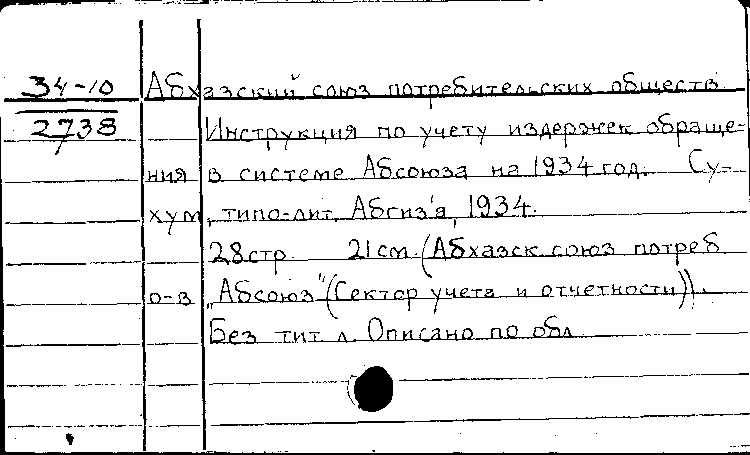 34-10 Абхазский союз потребительских обществ
2738 Инструкция по учету издержек обраще-
ния в системе Абсоюза на 1934 год. Су-
хум, типо-лит. Абгиз'а, 1934.
28 стр. 21 см. (Абхазск. союз потреб.
о-в „Абсоюз" (Сектор учета и отчетности)).
Без тит. л. Описано по обл.